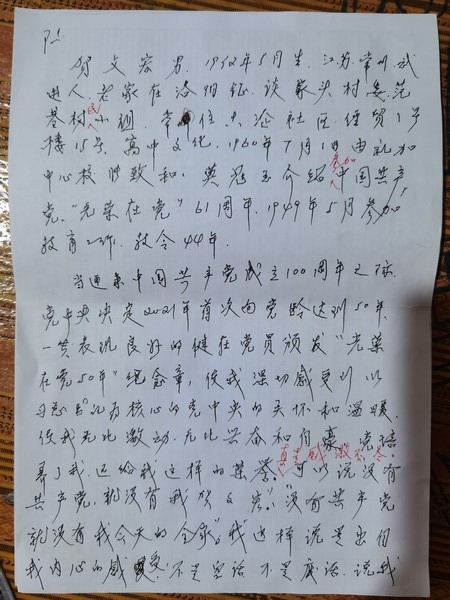 P1
贺文宏 男，1932年5月生，江苏常州武
进人，老家在洛阳镇谈家头村委范
巷村民小组，常住 社区 1号
楼15号，高中文化，1960年7月1日由礼加
中心校 和 介绍参加中国共产
党，"光荣在党"61周年，1949年5月参加
教育工作，教令44年。
当迎来中国共产党成立100周年之际，
党中央决定2021年首次向党龄达到50年，
一贯表现良好的健在党员颁发"光荣
在党50年"纪念章，使我深切感受到以
习总书记为核心的党中央的关怀和温暖，
使我无比激动，无比兴奋和自豪，党培
养了我，还给我这样的荣誉，真是感激不尽。可以说没有
共产党，就没有我贺文宏，没有共产党
就没有我今天的全家，我这样说是出自
我内心的感受，不是空话，不是废话，说我